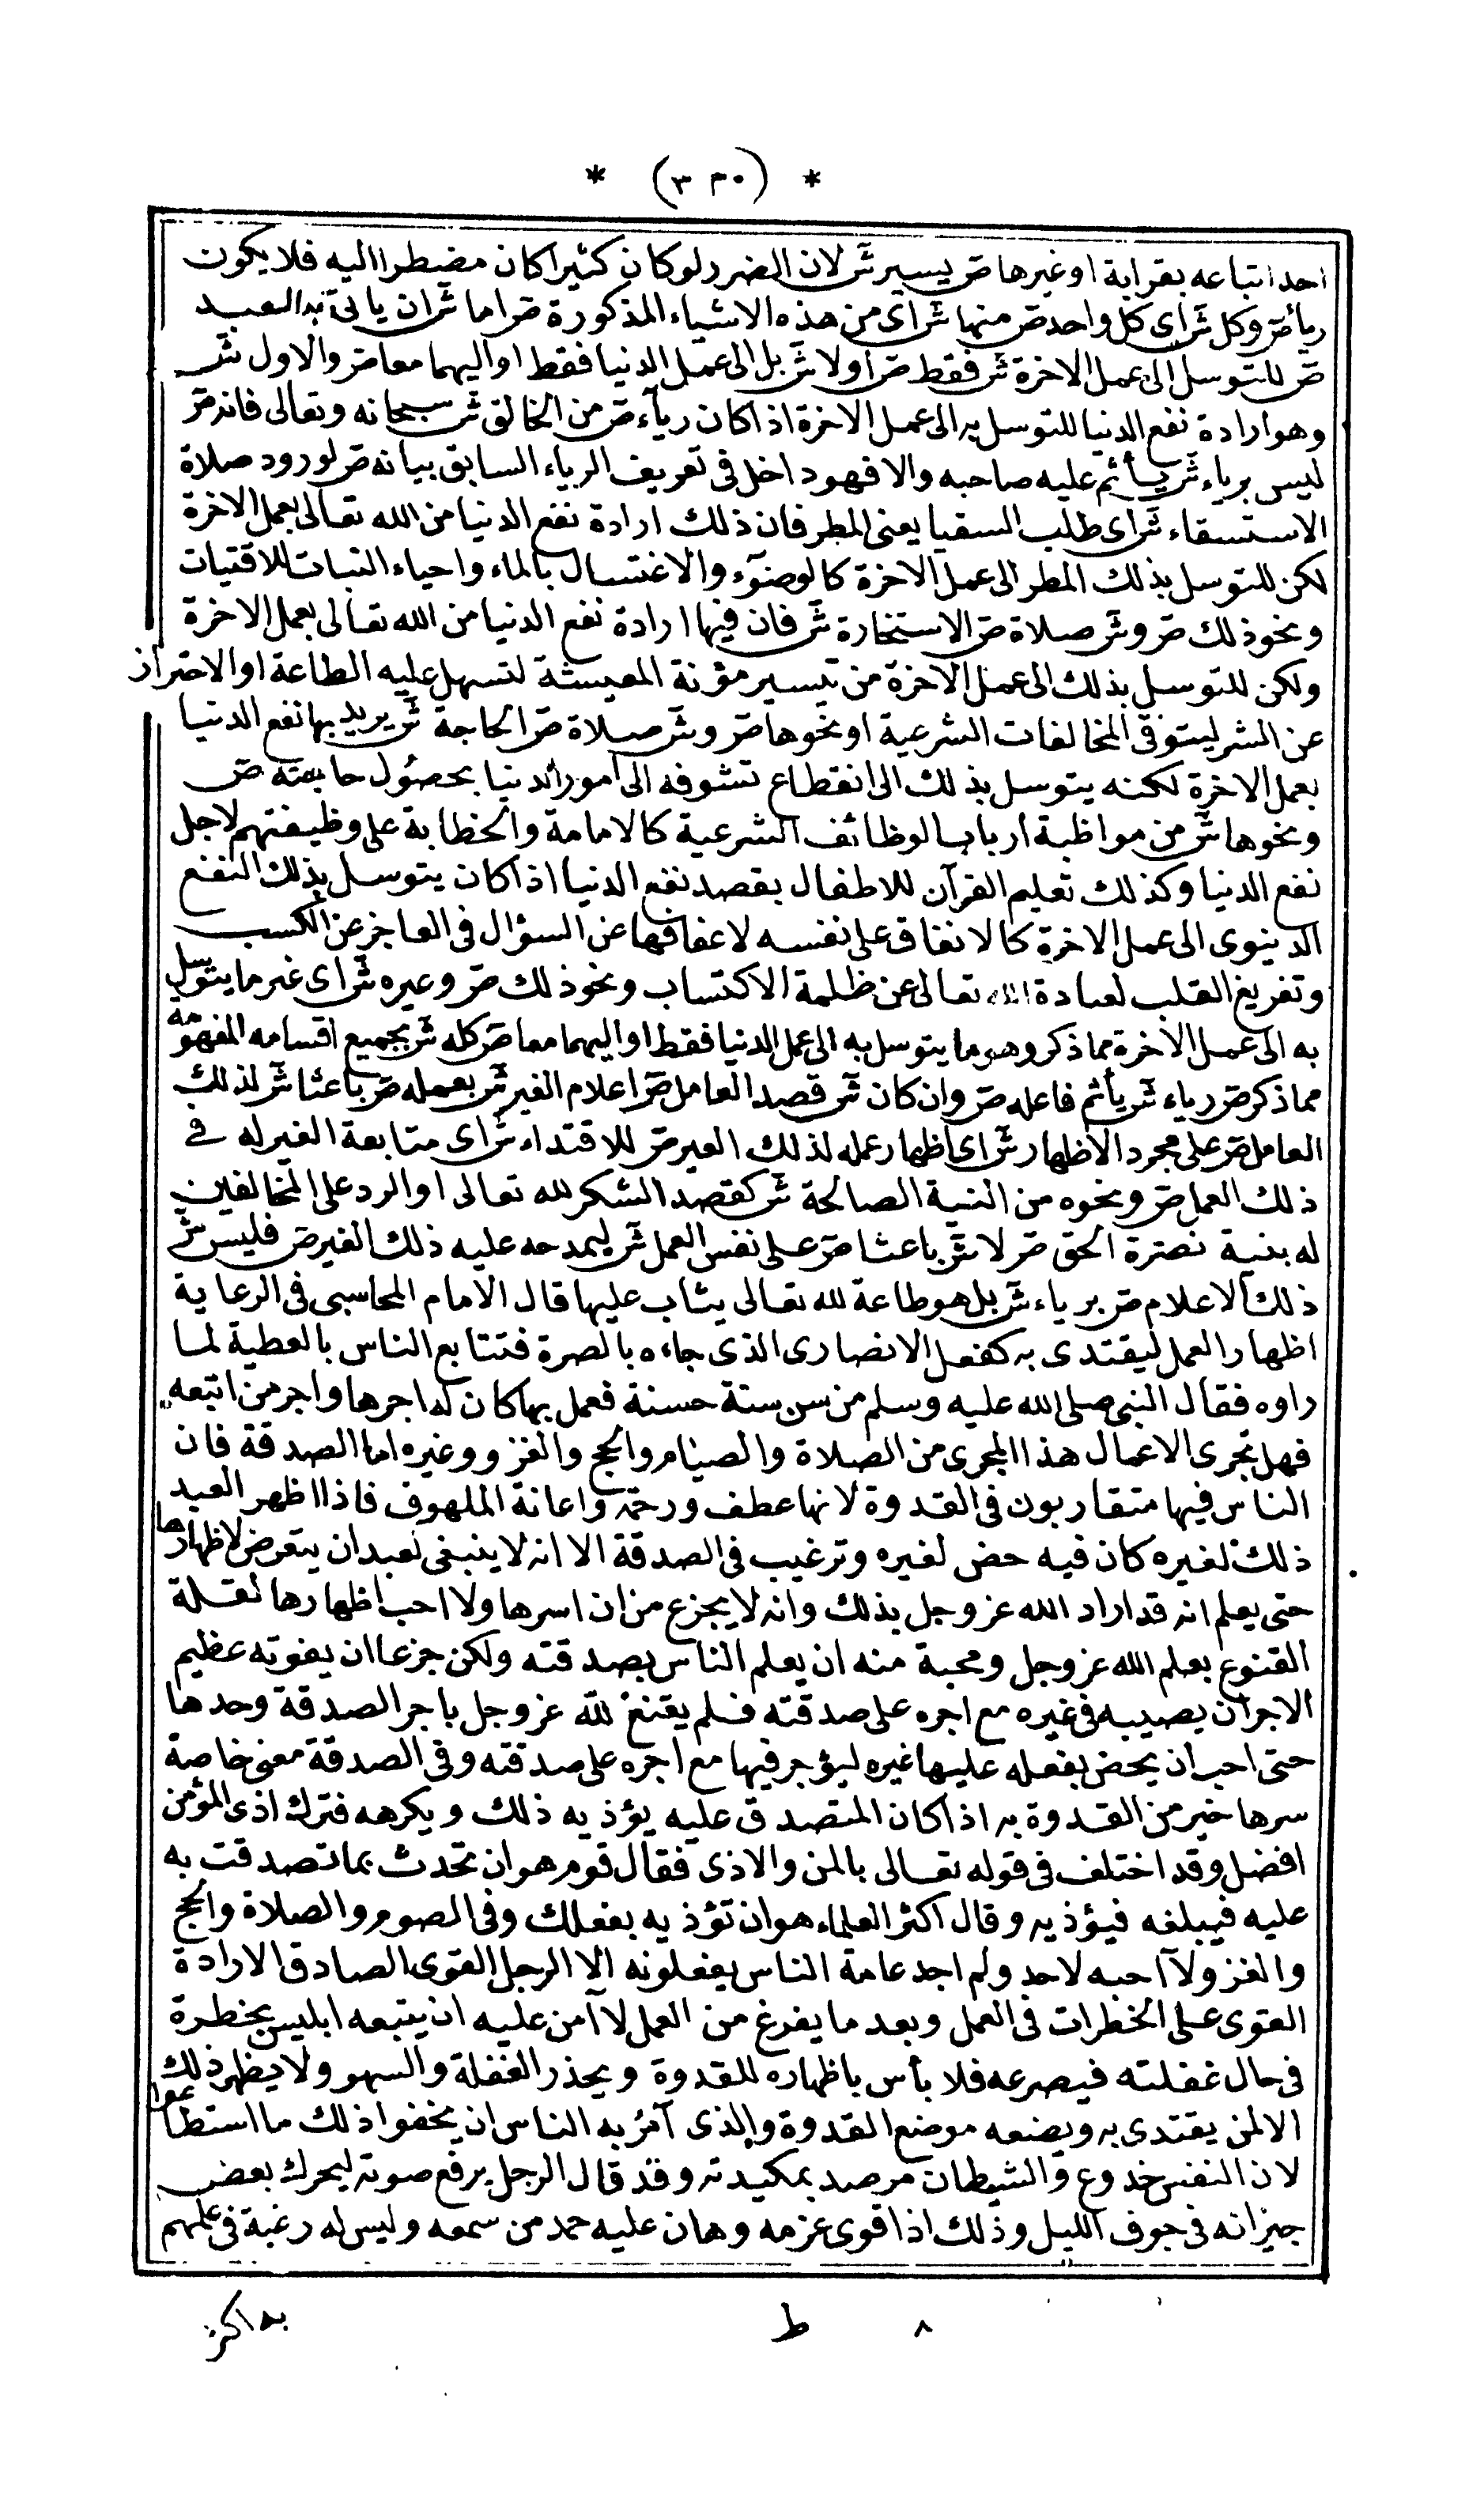 * (٣٢٠) *
احد اتباعه بقرابة او غيرها ص يسير ش لان الضرر لو كان كثيرا كان مضطرا اليه فلا يكون
رياء ص وكل ش اى كل واحد ص منها ش اى من هذه الاشياء المذكورة ص اما ش ان ياتى به العبد
ص للتوسل الى عمل الاخرة ش فقط ص او لا ش بل الى عمل الدنيا فقط او اليهما معا ص والاول ش
وهو ارادة نفع الدنيا للتوسل به الى عمل الاخرة اذا كان رياء ص من الخالق ش سبحانه وتعالى فانه ص
ليس برياء ش يأثم عليه صاحبه والا فهو داخل فى تعريف الرياء السابق بيانه ص لورود صلاة
الاستسقاء ش اى طلب السقيا يعنى المطر فان ذلك ارادة نفع الدنيا من الله تعالى بعمل الاخرة
لكن للتوسل بذلك المطر الى عمل الاخرة كالوضوء والاغتسال بالماء واحياء النبات للاقتيات
ونحو ذلك ص و ش صلاة ص الاستخارة ش فان فيها ارادة نفع الدنيا من الله تعالى بعمل الاخرة
ولكن للتوسل بذلك الى عمل الاخرة من تيسير مؤنة المعيشة لتسهل عليه الطاعة او الاحتراز
عن الشر ليتوقى المخالفات الشرعية او نحوها ص و ش صلاة ص الحاجة ش يريد بها نفع الدنيا
بعمل الاخرة لكنه يتوسل بذلك الى انقطاع تشوفه الى امور الدنيا بحصول حاجته ص
ونحوها ش من مواظبة ارباب الوظائف الشرعية كالامامة والخطابة على وظيفتهم لاجل
نفع الدنيا وكذلك تعليم القرآن للاطفال بقصد نفع الدنيا اذا كان يتوسل بذلك النفع
الدنيوى الى عمل الاخرة كالانفاق على نفسه لاعفافها عن السؤال فى العاجز عن الكسب
وتفريغ القلب لعبادة الله تعالى عن ظلمة الاكتساب ونحو ذلك ص وغيره ش اى غير ما يتوسل
به الى عمل الاخرة مما ذكر وهو ما يتوسل به الى عمل الدنيا فقط او اليهما معا ص كله ش بجميع اقسامه المفهومة
مما ذكر ص رياء ش يأثم فاعله ص وان كان ش قصد العامل ص اعلام الغير ش بعمله ص باعثا ش لذلك
العامل ص على مجرد الاظهار ش اى اظهار عمله لذلك الغير ص للاقتداء ش اى متابعة الغير له فى
ذلك العمل ص ونحوه من النية الصالحة ش كقصد الشكر لله تعالى او الرد على المخالفين
له بنية نصرة الحق ص لا ش باعثا ص على نفس العمل ش ليمدحه عليه ذلك الغير ص فليس ش
ذلك الاعلام ص برياء ش بل هو طاعة لله تعالى يثاب عليها قال الامام المحاسبى فى الرعاية
اظهار العمل ليقتدى به كفعل الانصارى الذى جاءه بالصرة فتتابع الناس بالعطية لما
راوه فقال النبى صلى الله عليه وسلم من سن سنة حسنة فعمل بها كان له اجرها واجر من اتبعه
فهل تجرى الاعمال هذا المجرى من الصلاة والصيام والحج والغزو وغيره اما الصدقة فان
الناس فيها متقاربون فى القدوة لانها عطف ورحمة واعانة الملهوف فاذا اظهر العبد
ذلك لغيره كان فيه حض لغيره وترغيب فى الصدقة الا انه لا ينبغى لعبد ان يتعرض لاظهارها
حتى يعلم انه قد اراد الله عز وجل بذلك وانه لا يجزع من ان اسرها ولا احب اظهارها لقلة
القنوع بعلم الله عز وجل ومحبة منه ان يعلم الناس بصدقته ولكن جزعا ان يفوته عظيم
الاجر ان يصيبه فى غيره مع اجره على صدقته فلم يقنع لله عز وجل باجر الصدقة وحدها
حتى احب ان يحض بفعله عليها غيره ليؤجر فيها مع اجره على صدقته وفى الصدقة معنى خاصة
سرها خير من القدوة به اذا كان المتصدق عليه يؤذيه ذلك ويكرهه فترك اذى المؤمن
افضل وقد اختلف فى قوله تعالى بالمن والاذى فقال قوم هو ان تحدث بما تصدقت به
عليه فيبلغه فيؤذيه وقال اكثر العلماء هو ان تؤذيه بفعلك وفى الصوم والصلاة والحج
والغزو لا احبه لاحد ولم اجد عامة الناس يفعلونه الا الرجل القوى الصادق الارادة
القوى على الخطرات فى العمل وبعد ما يفرغ من العمل لا آمن عليه ان يتبعه ابليس بخطرة
فى حال غفلته فيصرعه فلا بأس باظهاره للقدوة ويحذر الغفلة والسهو ولا يظهر ذلك
الا لمن يقتدى به ويضعه موضع القدوة والذى آمر به الناس ان يخفوا ذلك ما استطاعوا
لان النفس خدوع والشيطان مرصد بمكيدته وقد قال الرجل يرفع صوته ليحرك بعض
جيرانه فى جوف الليل وذلك اذا قوى عزمه وهان عليه حمد من سمعه وليس له رغبة فى علمهم
٨ ط